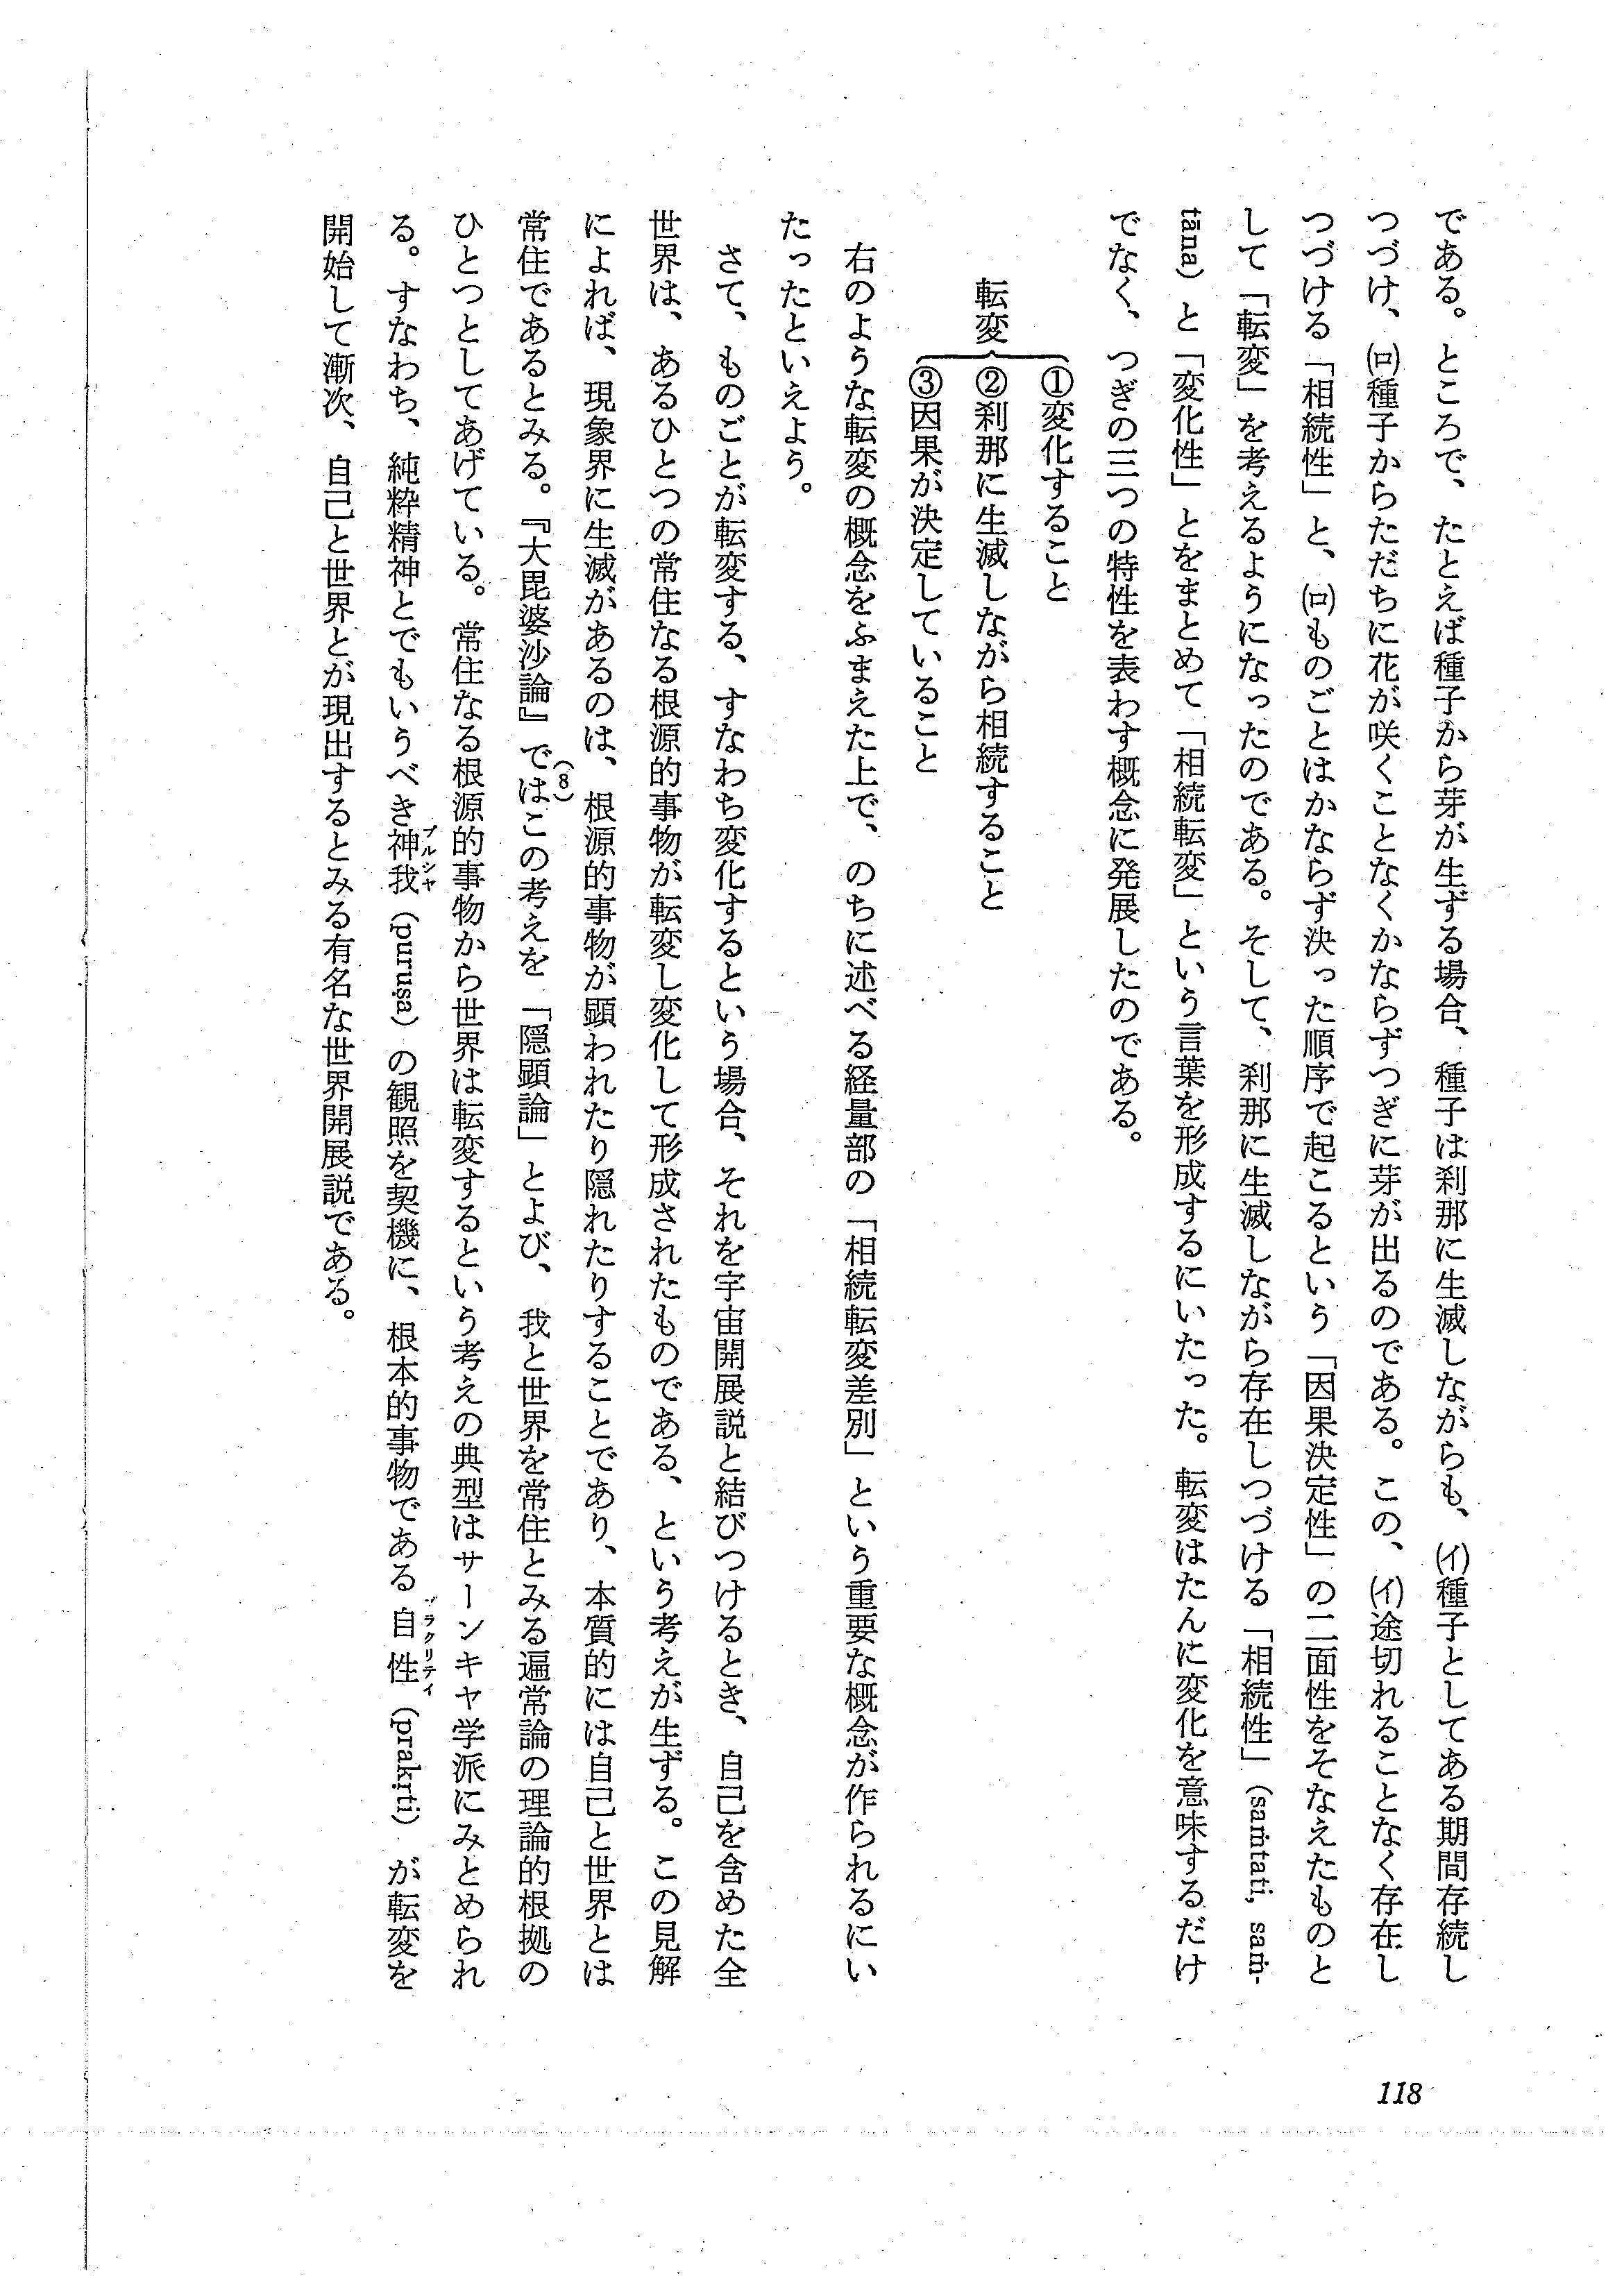 である。ところで、たとえば種子から芽が生ずる場合、種子は刹那に生滅しながらも、(イ)種子としてある期間存続し
つづけ、(ロ)種子からただちに花が咲くことなくかならずつぎに芽が出るのである。この、(イ)途切れることなく存在し
つづける「相続性」と、(ロ)ものごとはかならず決った順序で起こるという「因果決定性」の二面性をそなえたものと
して「転変」を考えるようになったのである。そして、刹那に生滅しながら存在しつづける「相続性」(saṁtati, saṁ-
tāna)と「変化性」とをまとめて「相続転変」という言葉を形成するにいたった。転変はたんに変化を意味するだけ
でなく、つぎの三つの特性を表わす概念に発展したのである。
転変
①変化すること
②刹那に生滅しながら相続すること
③因果が決定していること
右のような転変の概念をふまえた上で、のちに述べる経量部の「相続転変差別」という重要な概念が作られるにい
たったといえよう。
さて、ものごとが転変する、すなわち変化するという場合、それを宇宙開展説と結びつけるとき、自己を含めた全
世界は、あるひとつの常住なる根源的事物が転変し変化して形成されたものである、という考えが生ずる。この見解
によれば、現象界に生滅があるのは、根源的事物が顕われたり隠れたりすることであり、本質的には自己と世界とは
常住であるとみる。『大毘婆沙論』では(8)この考えを「隠顕論」とよび、我と世界を常住とみる遍常論の理論的根拠の
ひとつとしてあげている。常住なる根源的事物から世界は転変するという考えの典型はサーンキヤ学派にみとめられ
る。すなわち、純粋精神とでもいうべき神我プルシヤ(puruṣa)の観照を契機に、根本的事物である自性プラクリティ(prakṛti)が転変を
開始して漸次、自己と世界とが現出するとみる有名な世界開展説である。
118